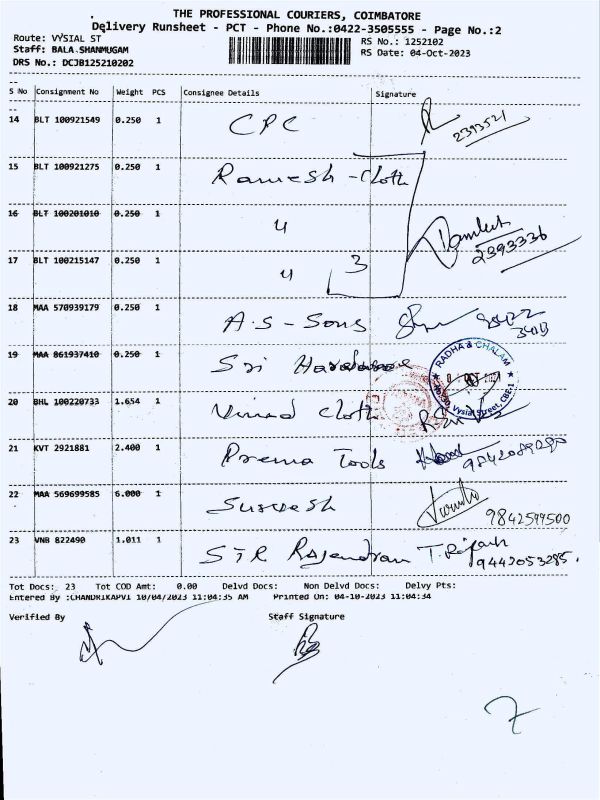 THE PROFESSIONAL COURIERS, COIMBATORE
Delivery Runsheet - PCT - Phone No.:0422-3505555 - Page No.:2
Route: VYSIAL ST
RS No.: 1252102
Staff: BALA.SHANMUGAM
RS Date: 04-Oct-2023
DRS No.: DCJB125210202
S No Consignment No Weight PCS Consignee Details Signature
14 BLT 100921549 0.250 1 CPC 2393521
15 BLT 100921275 0.250 1 Ramesh-Cloth
16 BLT 100201010 0.250 1 4 2393336
17 BLT 100215147 0.250 1 4 3
18 MAA 570939179 0.250 1 A.S-Sons 98422
19 MAA 861937410 0.250 1 Sri RADHA & CHALAM
20 BHL 100220733 1.654 1 Vinod Cloth Vysial Street, CBE-1
21 KVT 2921881 2.400 1 Prema Tools
22 MAA 569699585 6.000 1 Suvesh 9842599500
23 VNB 822490 1.011 1 STR Rajendran 9442053285.
Tot Docs: 23 Tot COD Amt: 0.00 Delvd Docs: Non Delvd Docs: Delvy Pts:
Entered By :CHANDRIKAPVI 10/04/2023 11:04:35 AM Printed On: 04-10-2023 11:04:34
Verified By Staff Signature
7